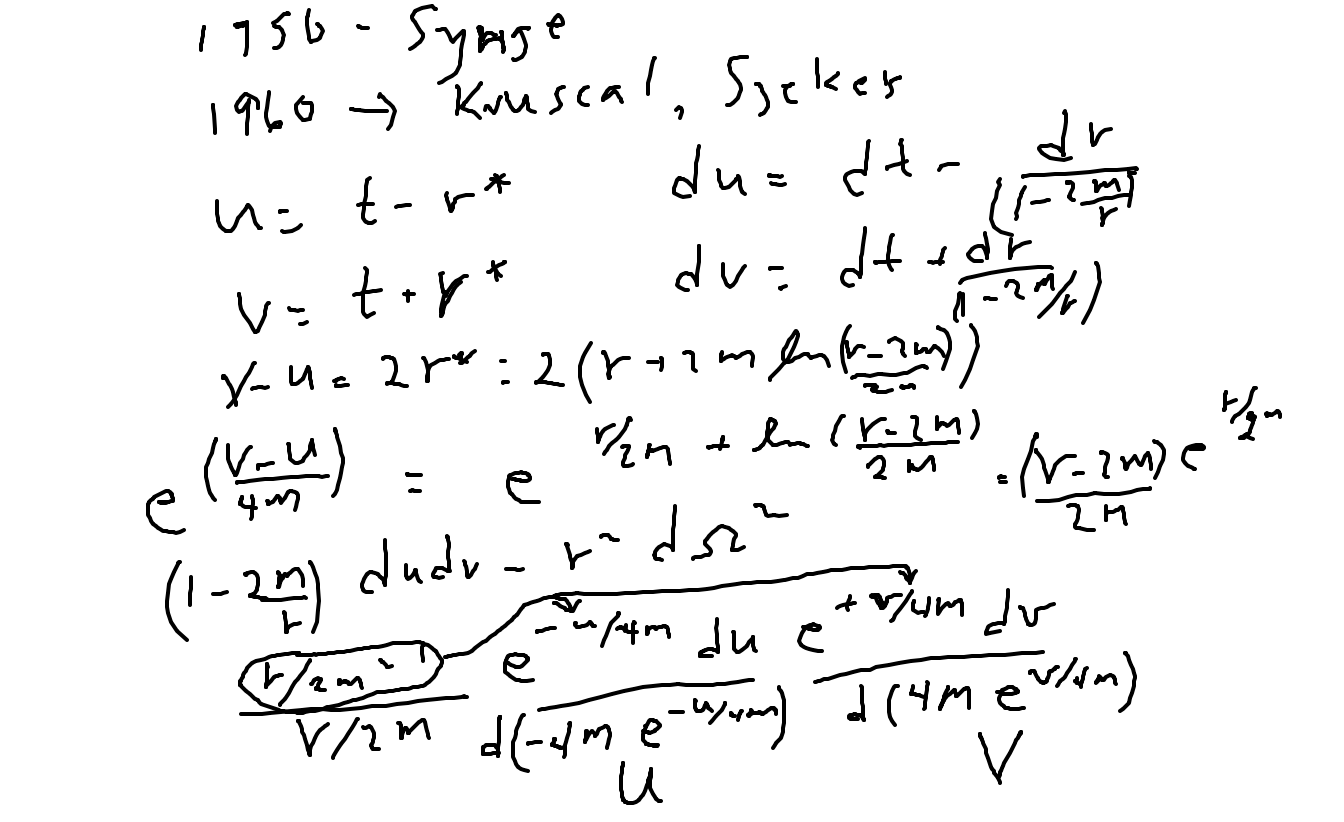 1956 - Synge
1960 → Kruscal, Szekes
u = t - r* du = dt - dr/(1 - 2m/r)
v = t + r* dv = dt + dr/(1 - 2m/r)
v - u = 2r* = 2(r + 2m ln((r - 2m)/2m))
e^((v - u)/4m) = e^(r/2m + ln((r - 2m)/2m)) = ((r - 2m)/2m) e^(r/2m)
(1 - 2m/r) du dv - r² dΩ²
(r/2m - 1)/(r/2m) e^(-u/4m) du e^(+v/4m) dv
d(-4m e^(-u/4m)) d(4m e^(v/4m))
U V